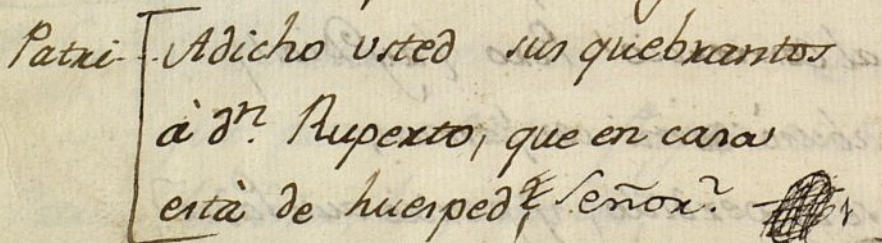 Patri. Adicho usted sus quebrantos
à dn. Ruperto, que en casa
està de huesped, Señor?